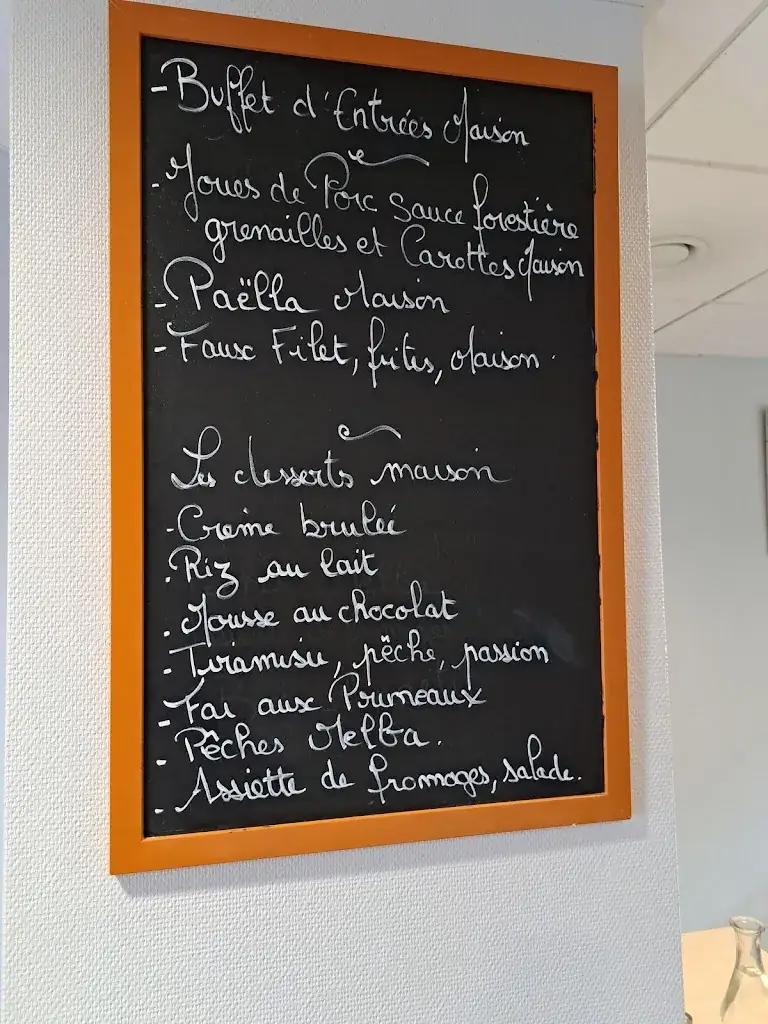 - Buffet d'Entrées Maison
- Joues de Porc sauce forestière
grenailles et Carottes Maison
- Paëlla Maison
- Faux Filet, frites, Maison.
Les desserts maison
- Crème brulée
. Riz au lait
. Mousse au chocolat
- Tiramisu, pêche, passion
- Far aux Pruneaux
. Pêches Melba.
. Assiette de fromages, salade.